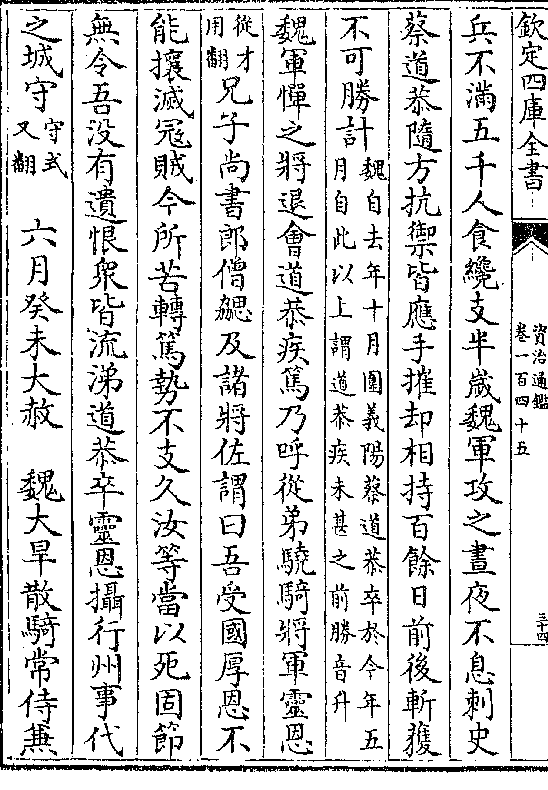 欽定四庫全書
資治通鑑
卷一百四十五
三十四
兵不滿五千人食纔支半歲魏軍攻之晝夜不息刺史
蔡道恭隨方抗禦皆應手摧却相持百餘日前後斬獲
不可勝計魏自去年十月圍義陽蔡道恭卒於今年五
月自此以上謂道恭疾未甚之前勝音升
魏軍憚之將退會道恭疾篤乃呼從弟驍騎將軍靈恩
從才
用翻兄子尚書郎僧勰及諸將佐謂曰吾受國厚恩不
能攘滅冦賊今所苦轉篤勢不支久汝等當以死固節
無令吾没有遺恨衆皆流涕道恭卒靈恩攝行州事代
之城守守式
又翻 六月癸未大赦 魏大旱散騎常侍兼